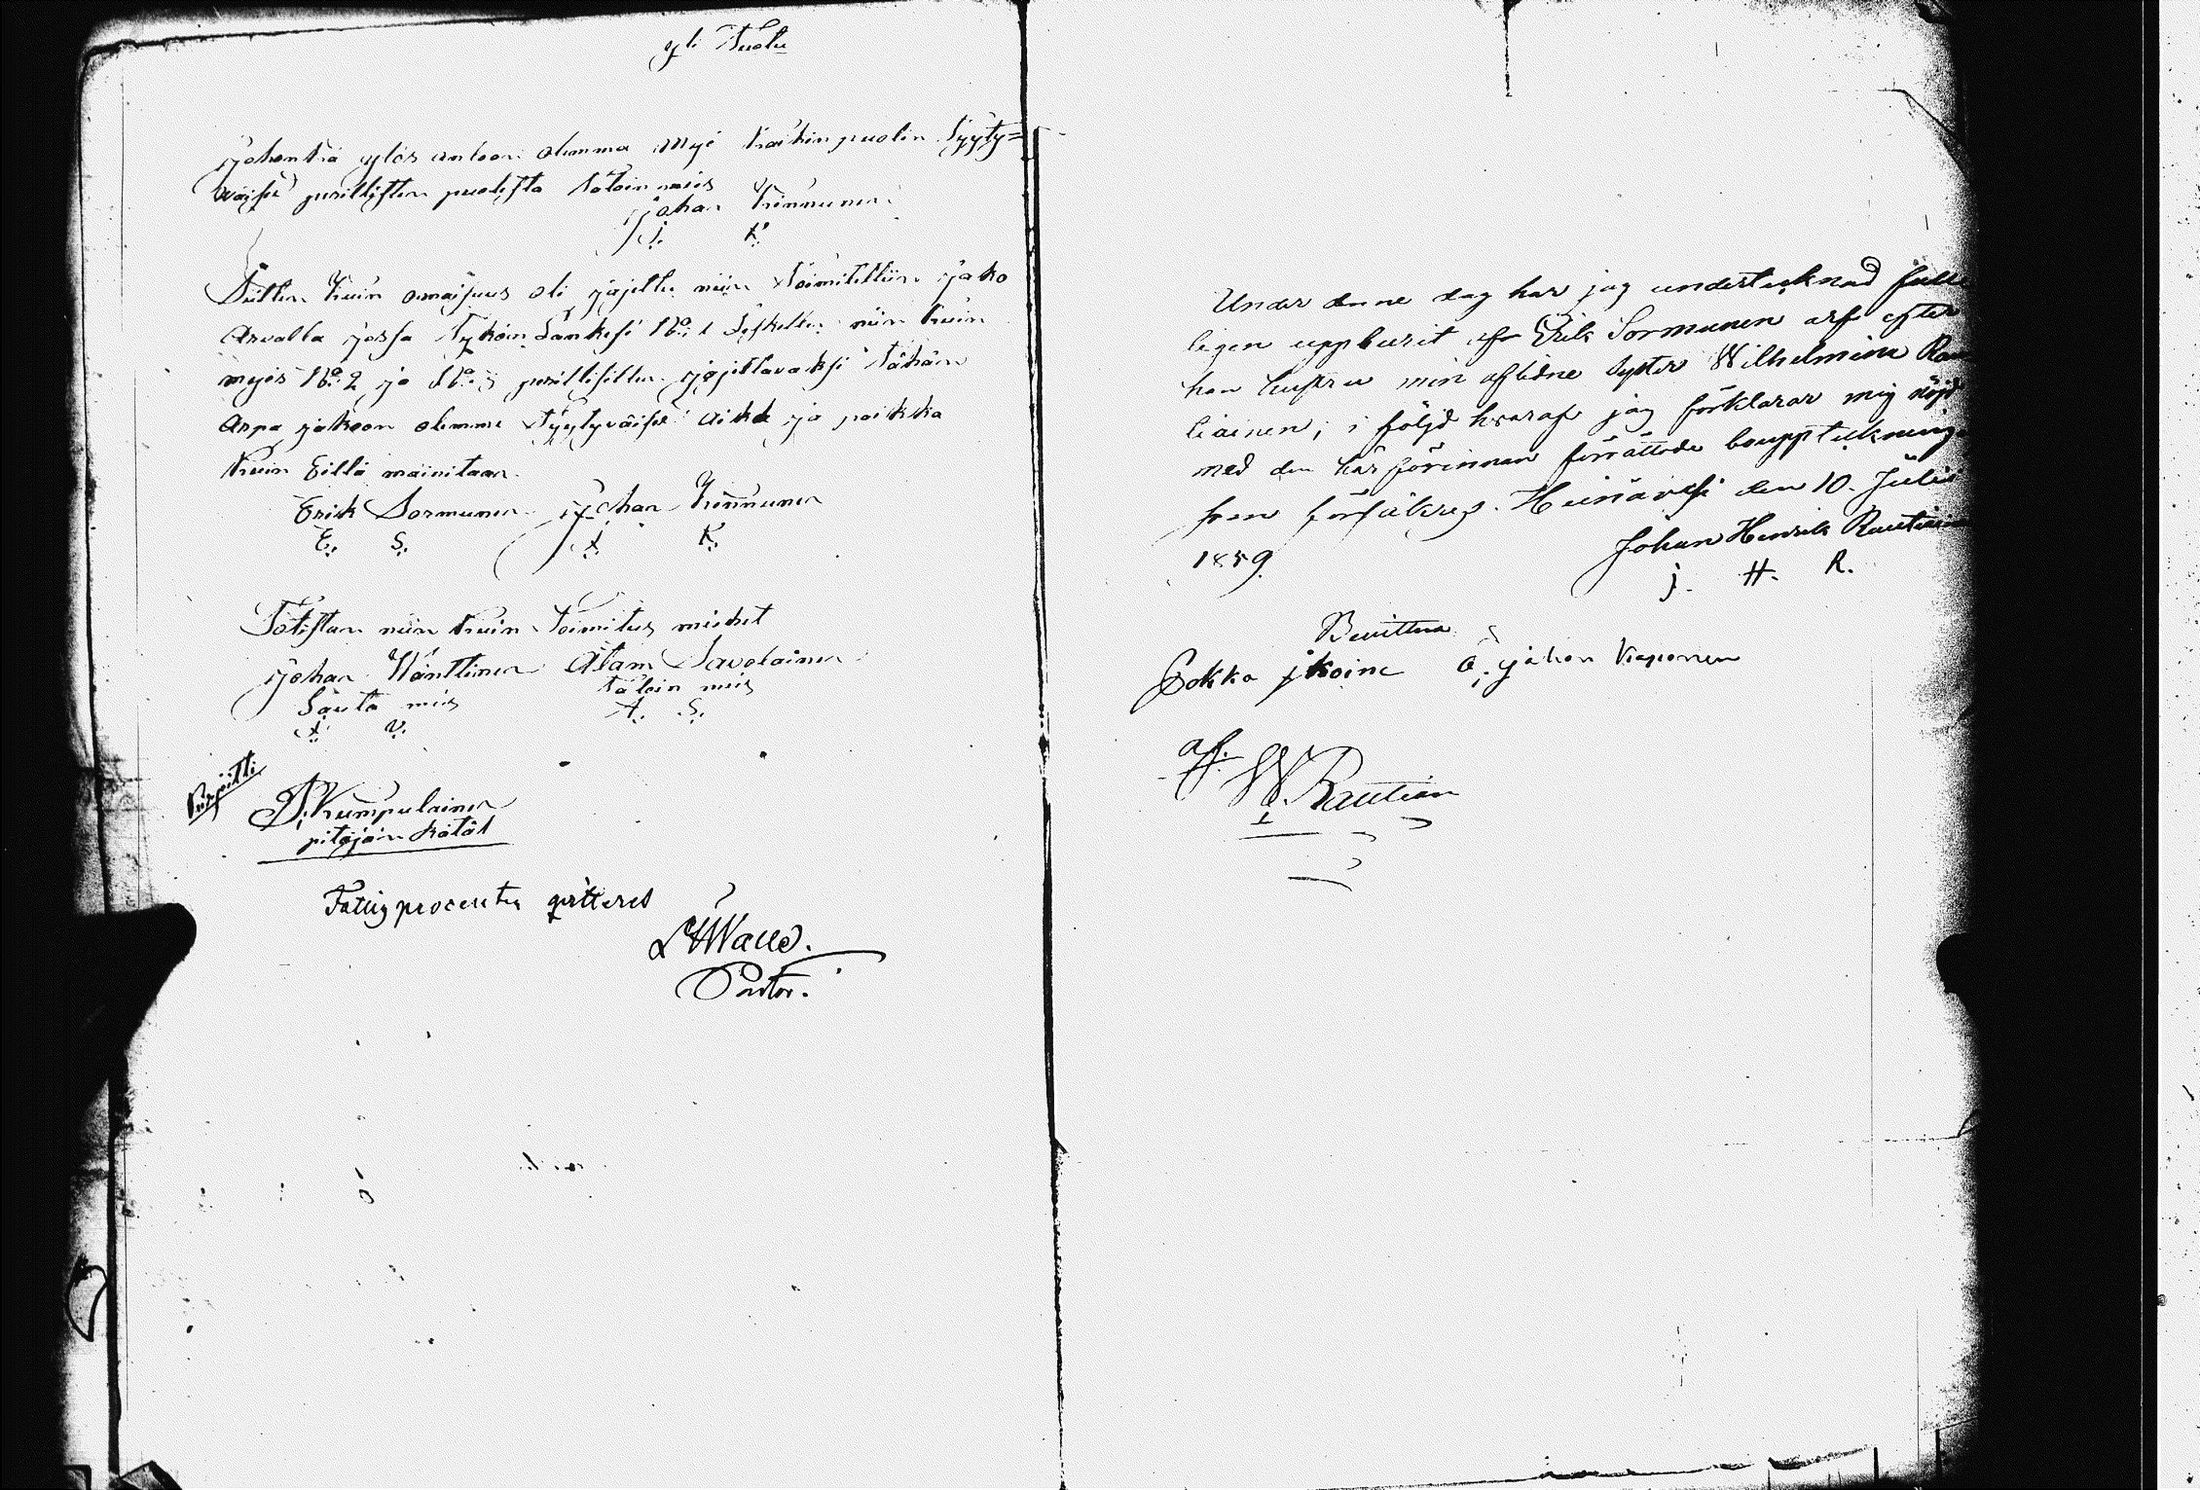 yli Tuotu
johonka ylös antoon olemma myö kaikin puolin tyyty=
wäiset perillisten puolesta
Johan Kinnunen
J. K.
Sitten kuin omaisuus oli jajettu niin toimitettiin jako
Arvalla jossa No 1 niin kuin
myös No 2 ja No 3 jajettavaksi tähän
Arpa jakoon olemme tyytyväiset aika ja paikka
kuin Eillä mainitaan
Erik Sormunen Johan Kinnunen
E. S. J. K.
Totistan niin kuin Toimitus miehet
Johan Wänttinen Atam Savolainen
Lauta mies taloin mies
J. V. A. S.
Kirjoitti
Kumpulainen
pitäjän Rätäl
Fattigprocenten qvitteras
Pastor.
Under denne dag har jag undertecknad fulle
ligen uppburit af Erik Sormunen arf efter
han hustru min aflidne syster Wilhelmina Rau
tiainen; i följd hvaraf jag förklarar mig nöjd
med den här förinnan förrättade bouppteckning
som försäkras. Heinävesi den 10. Julii
1859.
Johan Henrik Rautiain
J. H. R.
Bevittna
Johan
af.
W. Rautian